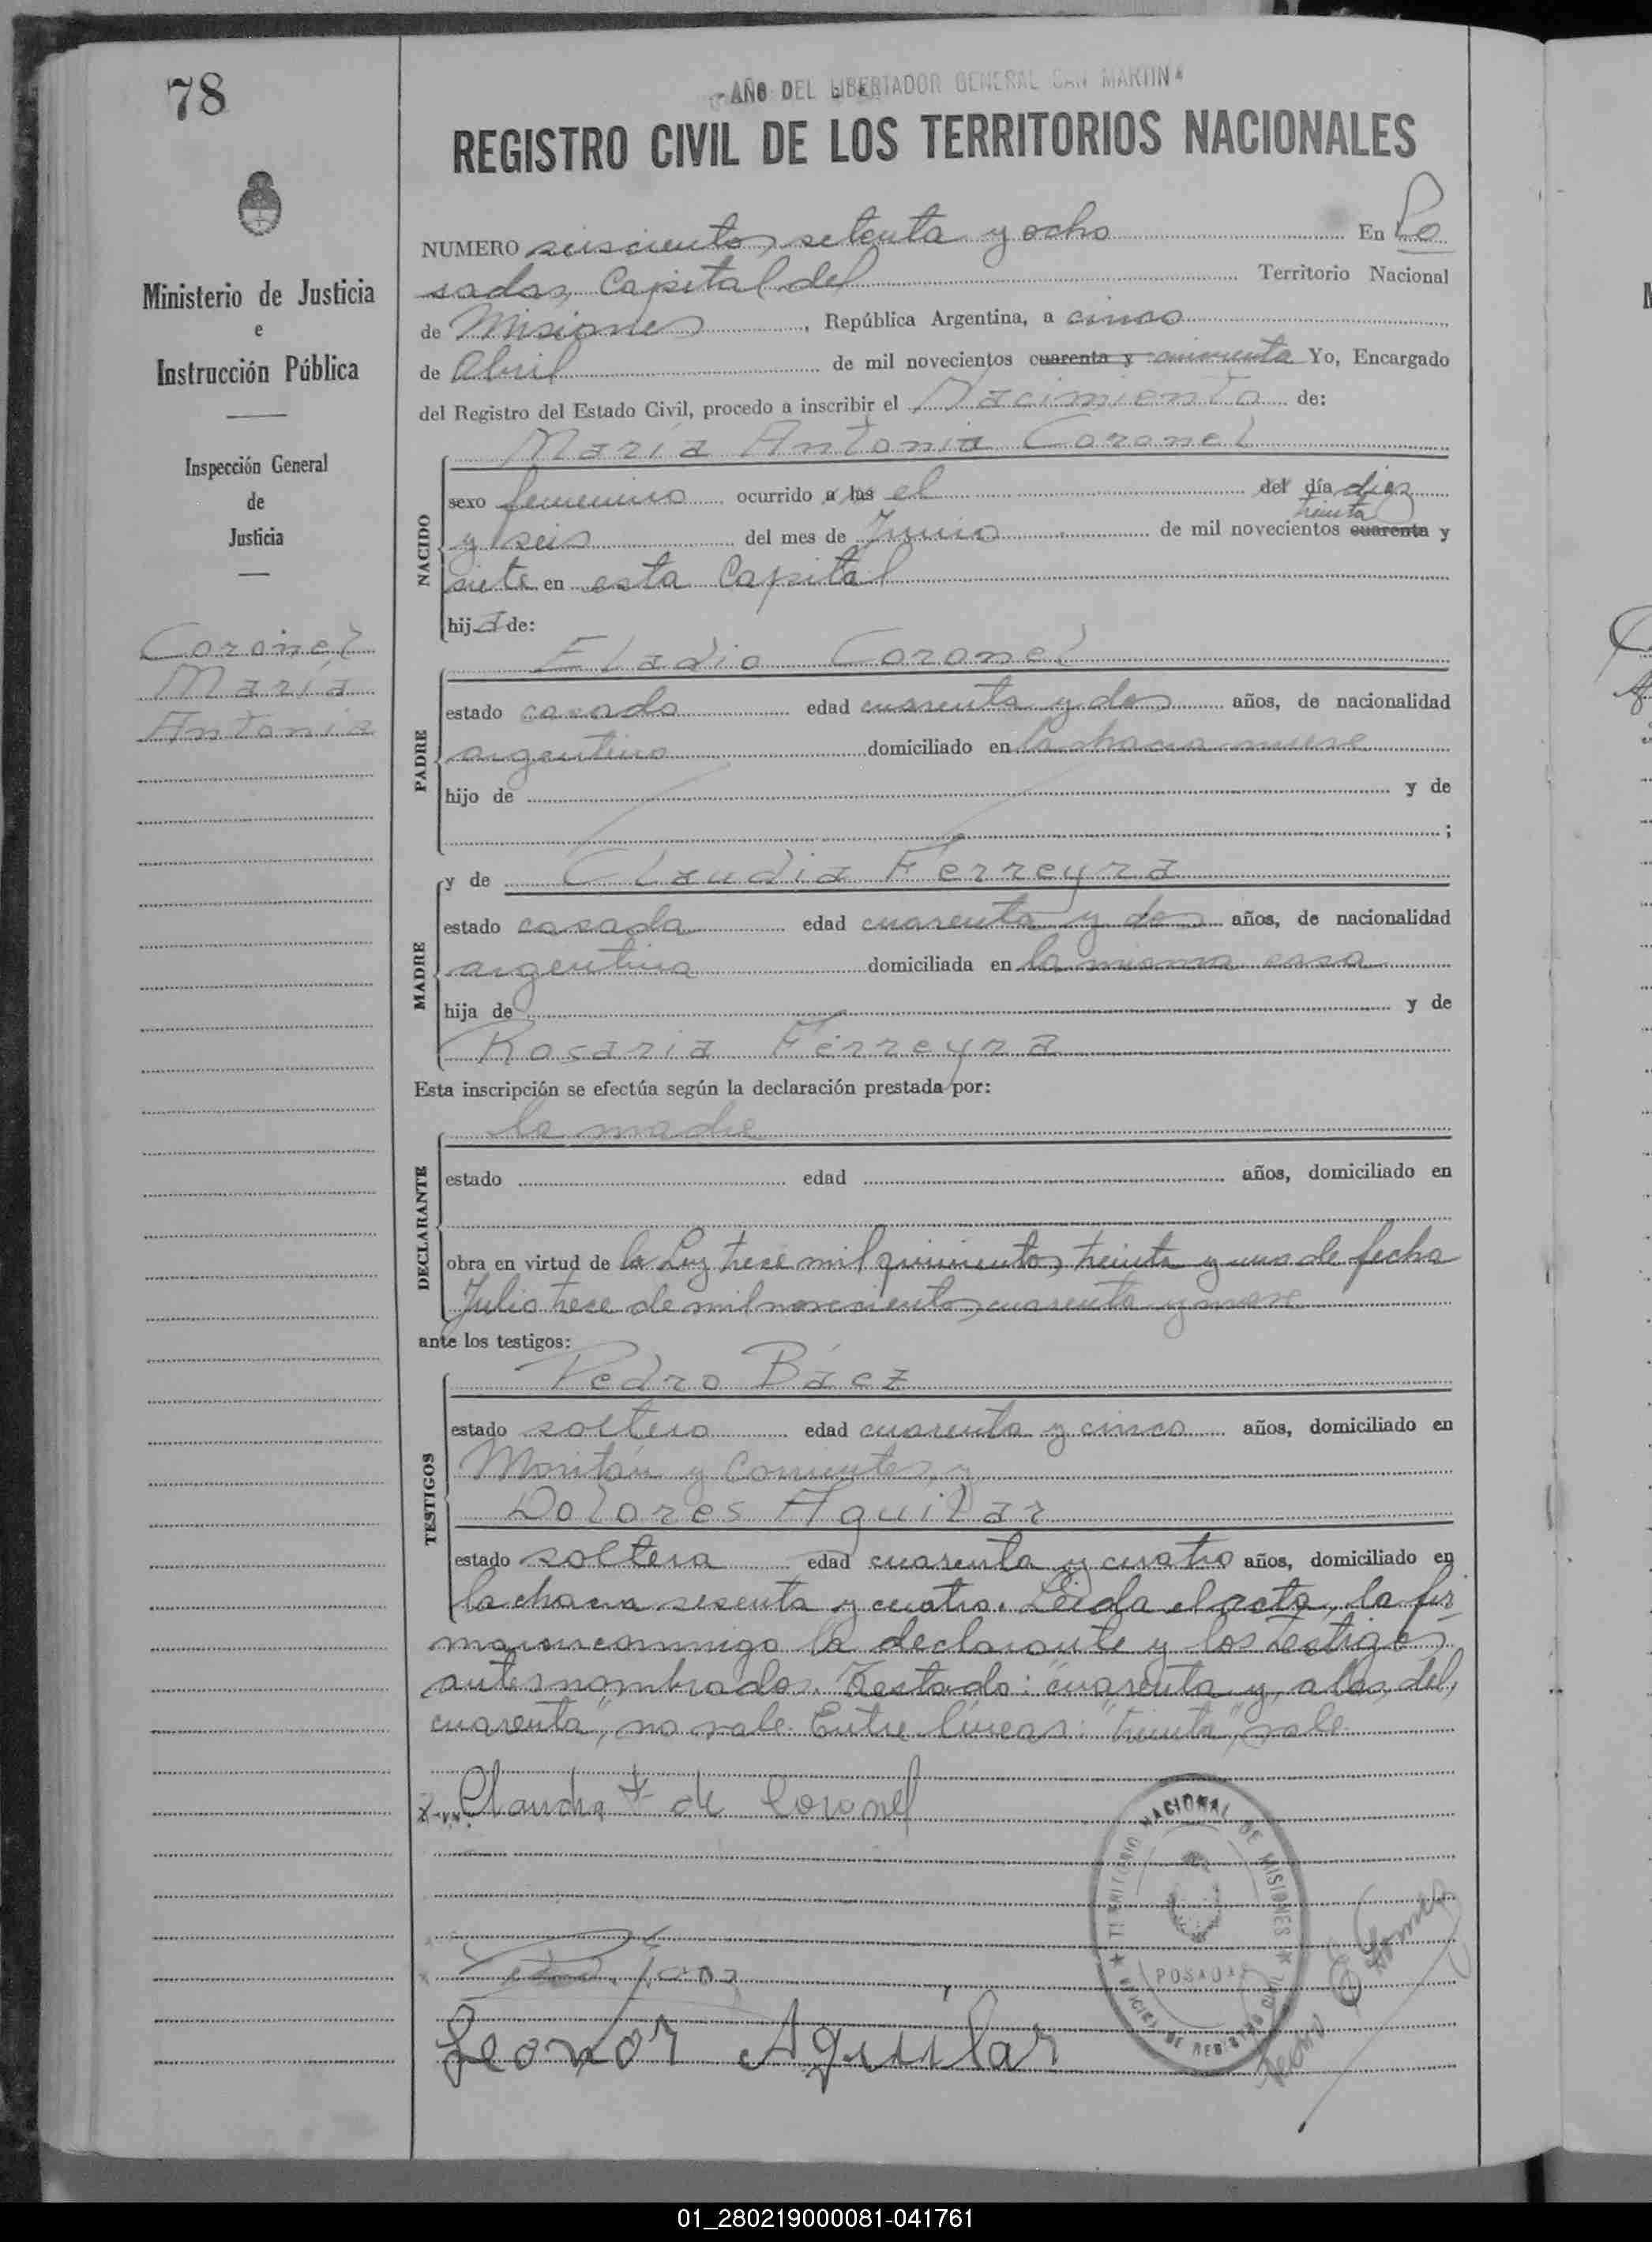 78
AÑO DEL LIBERTADOR GENERAL SAN MARTIN
REGISTRO CIVIL DE LOS TERRITORIOS NACIONALES
Ministerio de Justicia
e
Instrucción Pública
Inspección General
de
Justicia
Coronel
María
Antonia
NUMERO seiscientos setenta y ocho En Po
sadas, Capital del Territorio Nacional
de Misiones, República Argentina, a cinco
de Abril de mil novecientos cuarenta y cincuenta Yo, Encargado
del Registro del Estado Civil, procedo a inscribir el Nacimiento de:
María Antonia Coronel
NACIDO
sexo femenino ocurrido a las el del día diez
treinta
y seis del mes de Junio de mil novecientos cuarenta y
siete en esta Capital
hija de:
Eladio Coronel
PADRE
estado casado edad cuarenta y dos años, de nacionalidad
argentino domiciliado en la chacra nueve
hijo de y de
;
MADRE
y de Claudia Ferreyra
estado casada edad cuarenta y dos años, de nacionalidad
argentina domiciliada en la misma casa
hija de y de
Rosaria Ferreyra
Esta inscripción se efectúa según la declaración prestada por:
la madre
DECLARANTE
estado edad años, domiciliado en
obra en virtud de la Ley trece mil quinientos treinta y uno de fecha
Julio trece de mil novecientos cuarenta y nueve
ante los testigos:
Pedro Báez
TESTIGOS
estado soltero edad cuarenta y cinco años, domiciliado en
y Corrientes, y
Dolores Aguilar
estado soltera edad cuarenta y cuatro años, domiciliado en
la chacra sesenta y cuatro. Leída el acta, la fir
maron conmigo la declarante y los testigos
antes nombrados. Testado: "cuarenta y, a las, del,
cuarenta", no vale. Entre líneas: "treinta", vale.
Claudia F de Coronel
Leonor Aguilar
TERRITORIO NACIONAL DE MISIONES
POSADAS
OFICINA DE REGISTRO CIVIL
01_280219000081-041761